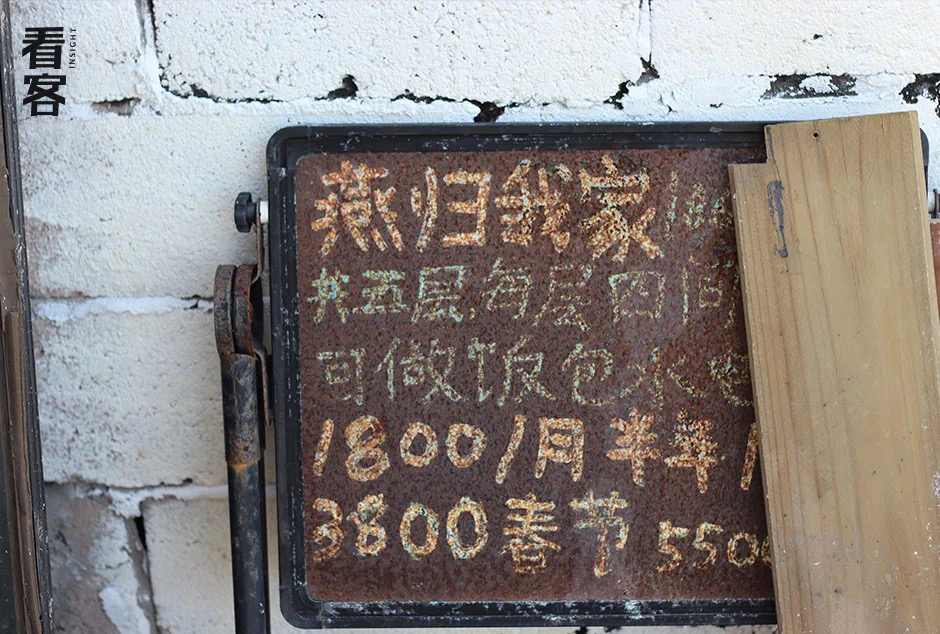 看客
INSIGHT
燕归我家
共五层.每层四间
可做饭包水电
1800/月半年1
3800春节 5500